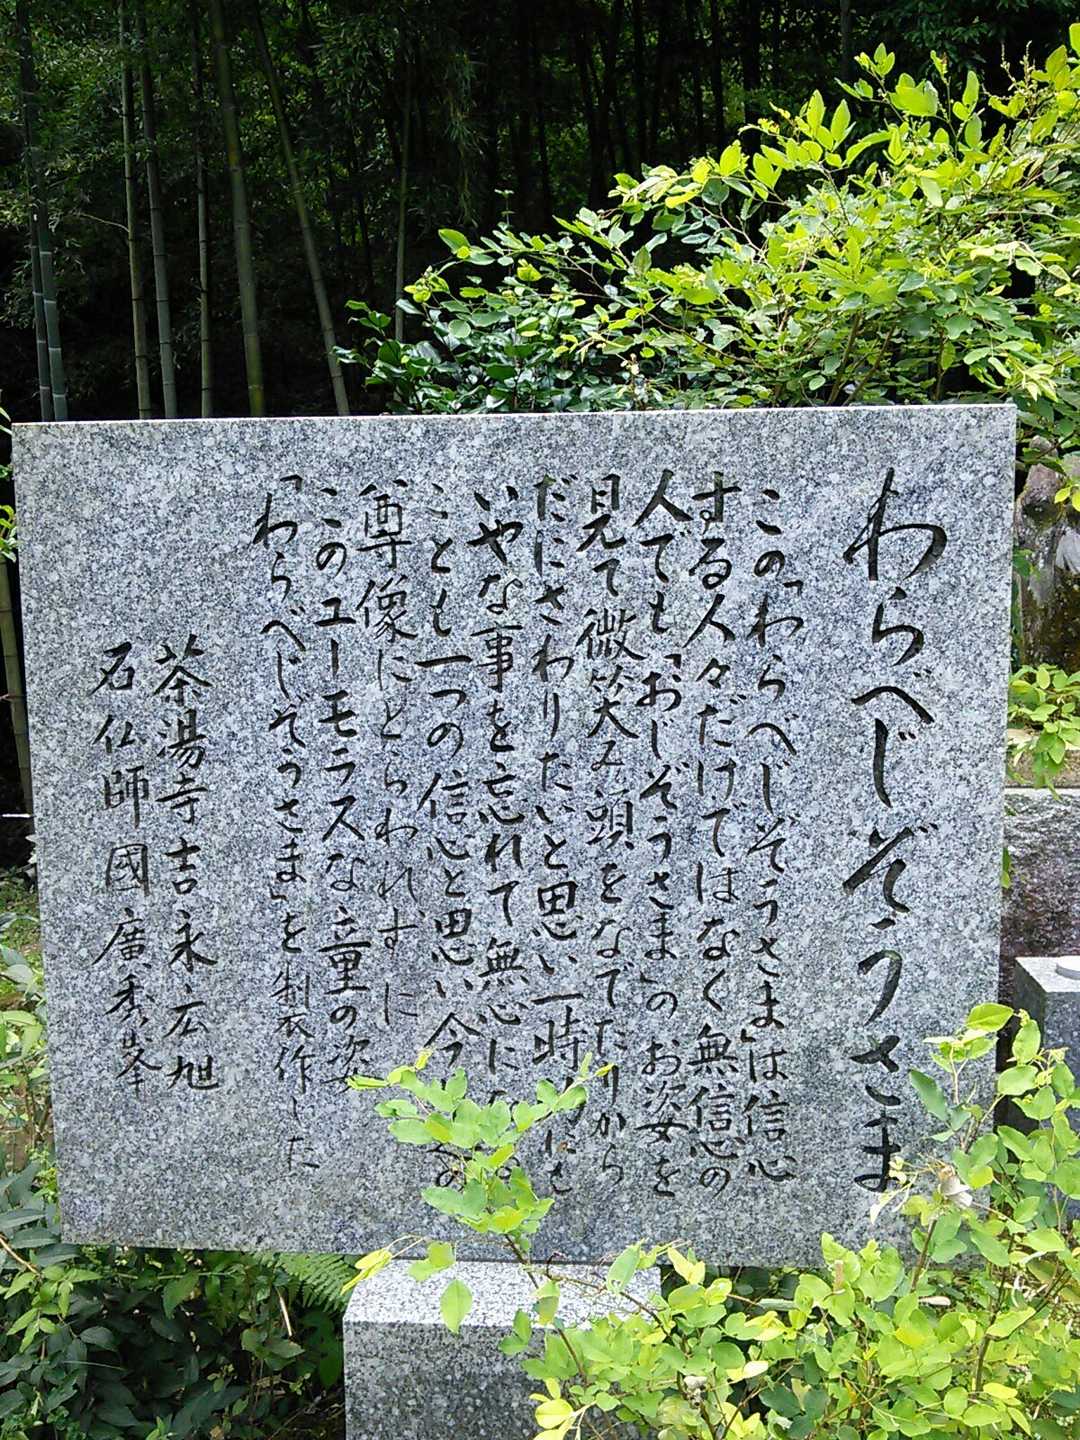 わらべじぞうさま
この「わらべじぞうさま」は信心
する人々だけではなく無信心の
人でも「おじぞうさま」のお姿を
見て微笑み頭をなでたりから
だにさわりたいと思い一時的にも
いやな事を忘れて無心に
ことも一つの信心と思い今の
尊像にとらわれずに
このユーモラスな童の姿
「わらべじぞうさま」を制作した
茶湯寺吉永広旭
石仏師國廣秀峯